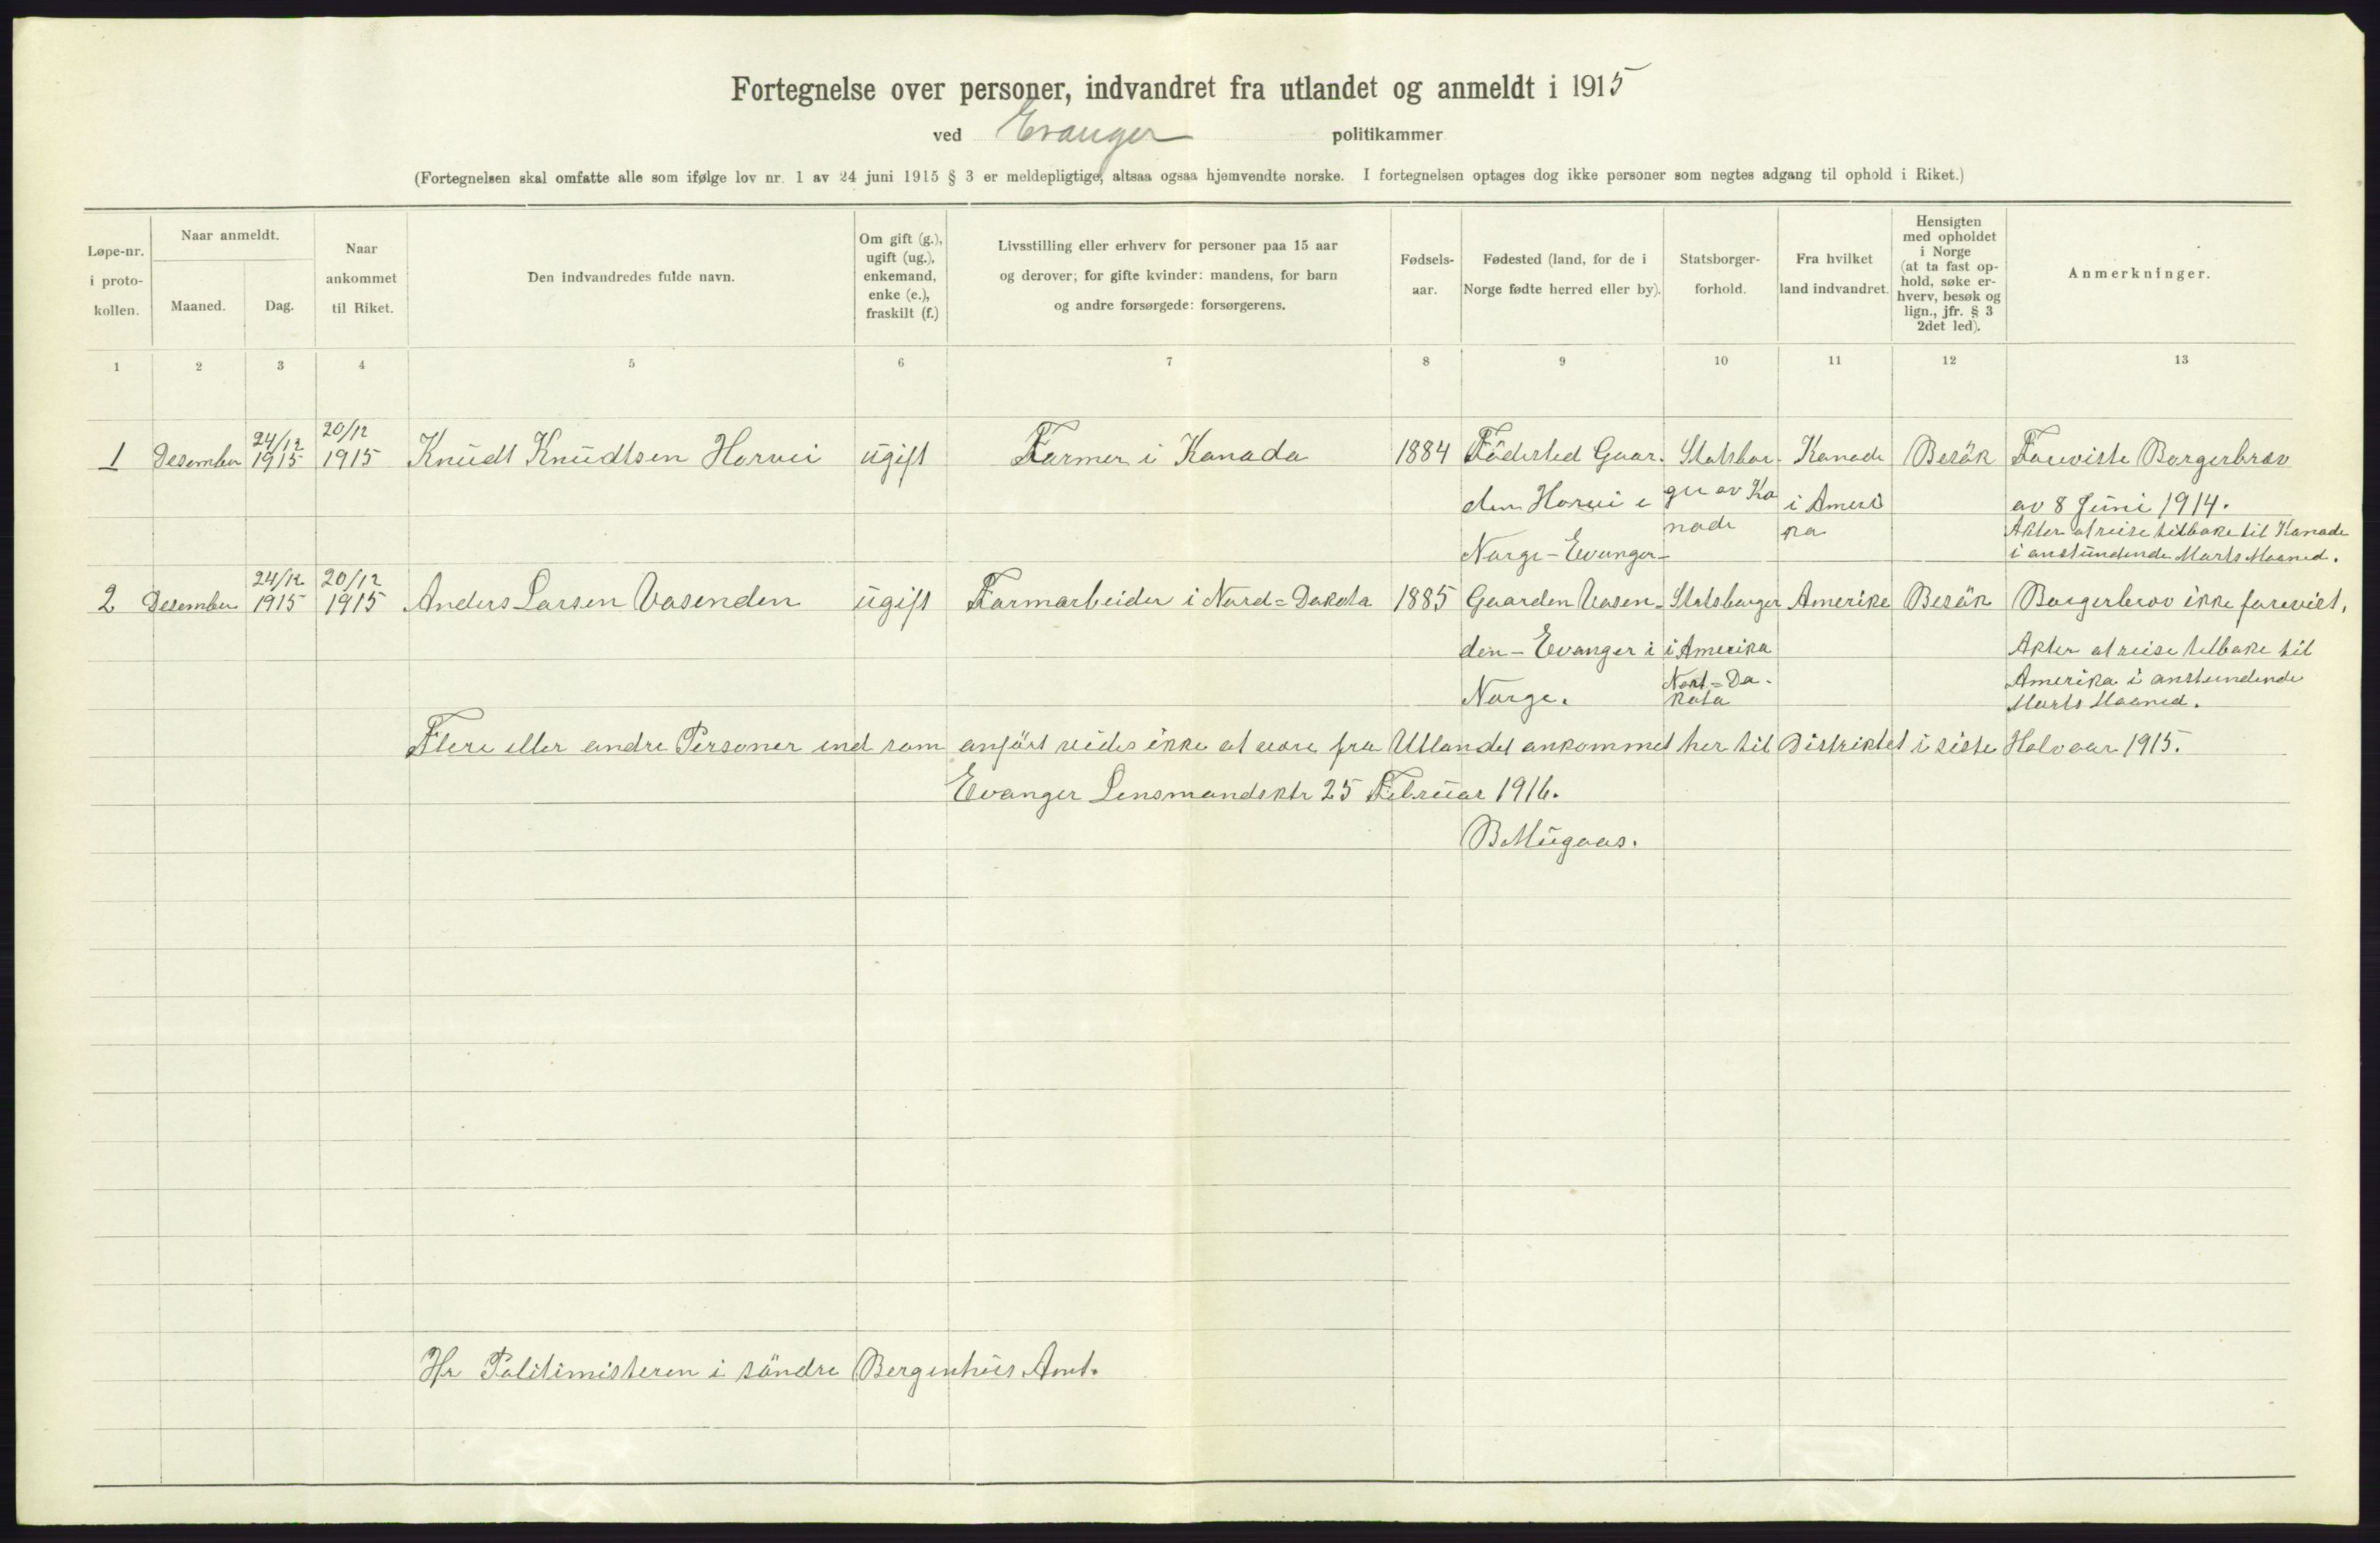 Fortegnelse over personer, indvandret fra utlandet og anmeldt i 1915
ved Evanger politikammer
(Fortegnelsen skal omfatte alle som ifølge lov nr. 1 av 24 juni 1915 § 3 er meldepligtige, altsaa ogsaa hjemvendte norske. I fortegnelsen optages dog ikke personer som negtes adgang til ophold i Riket.)
Løpe-nr.
i proto-
kollen.
Naar anmeldt.
Maaned.
Dag.
Naar
ankommet
til Riket.
Den indvandredes fulde navn.
Om gift (g.),
ugift (ug.),
enkemand,
enke (e.),
fraskilt (f.)
Livsstilling eller erhverv for personer paa 15 aar
og derover; for gifte kvinder: mandens, for barn
og andre forsørgede: forsørgerens.
Fødsels-
aar.
Fødested (land, for de i
Norge fødte herred eller by).
Statsborger-
forhold.
Fra hvilket
land indvandret.
Hensigten
med opholdet
i Norge
(at ta fast op-
hold, søke er-
hverv, besøk og
lign., jfr. § 3
2det led).
Anmerkninger.
1 2 3 4 5 6 7 8 9 10 11 12 13
24/12 20/12
1 Desember 1915 1915 Knudt Knudtsen Horvei ugift Farmer i Kanada 1884 Födested Gaar- Statsbor- Kanada Besök Foreviste Borgerbrev
den Horvei i ger av Ka i Ameri av 8 Juni 1914.
nada ka Akter at reise tilbake til Kanada
Norge - Evanger - i anstundende Marts Maaned.
24/12 20/12
2 Desember 1915 1915 Anders Larsen Vasenden ugift Farmarbeider i Nord=Dakota 1885 Gaarden Vasen- Statsborger Amerika Besök Borgerbrev ikke forevist,
den - Evanger i i Amerika Akter at reise tilbake til
Nort=Da- Amerika i anstundende
Norge. kota Marts Maaned.
Flere eller andre Personer end som anført vides ikke at være fra Utlandet ankommet her til Distriktet i siste Halvaar 1915.
Evanger Lensmandsktr 25 Februar 1916.
B Mügaas.
Hr Politimisteren i söndre Bergenhus Amt.